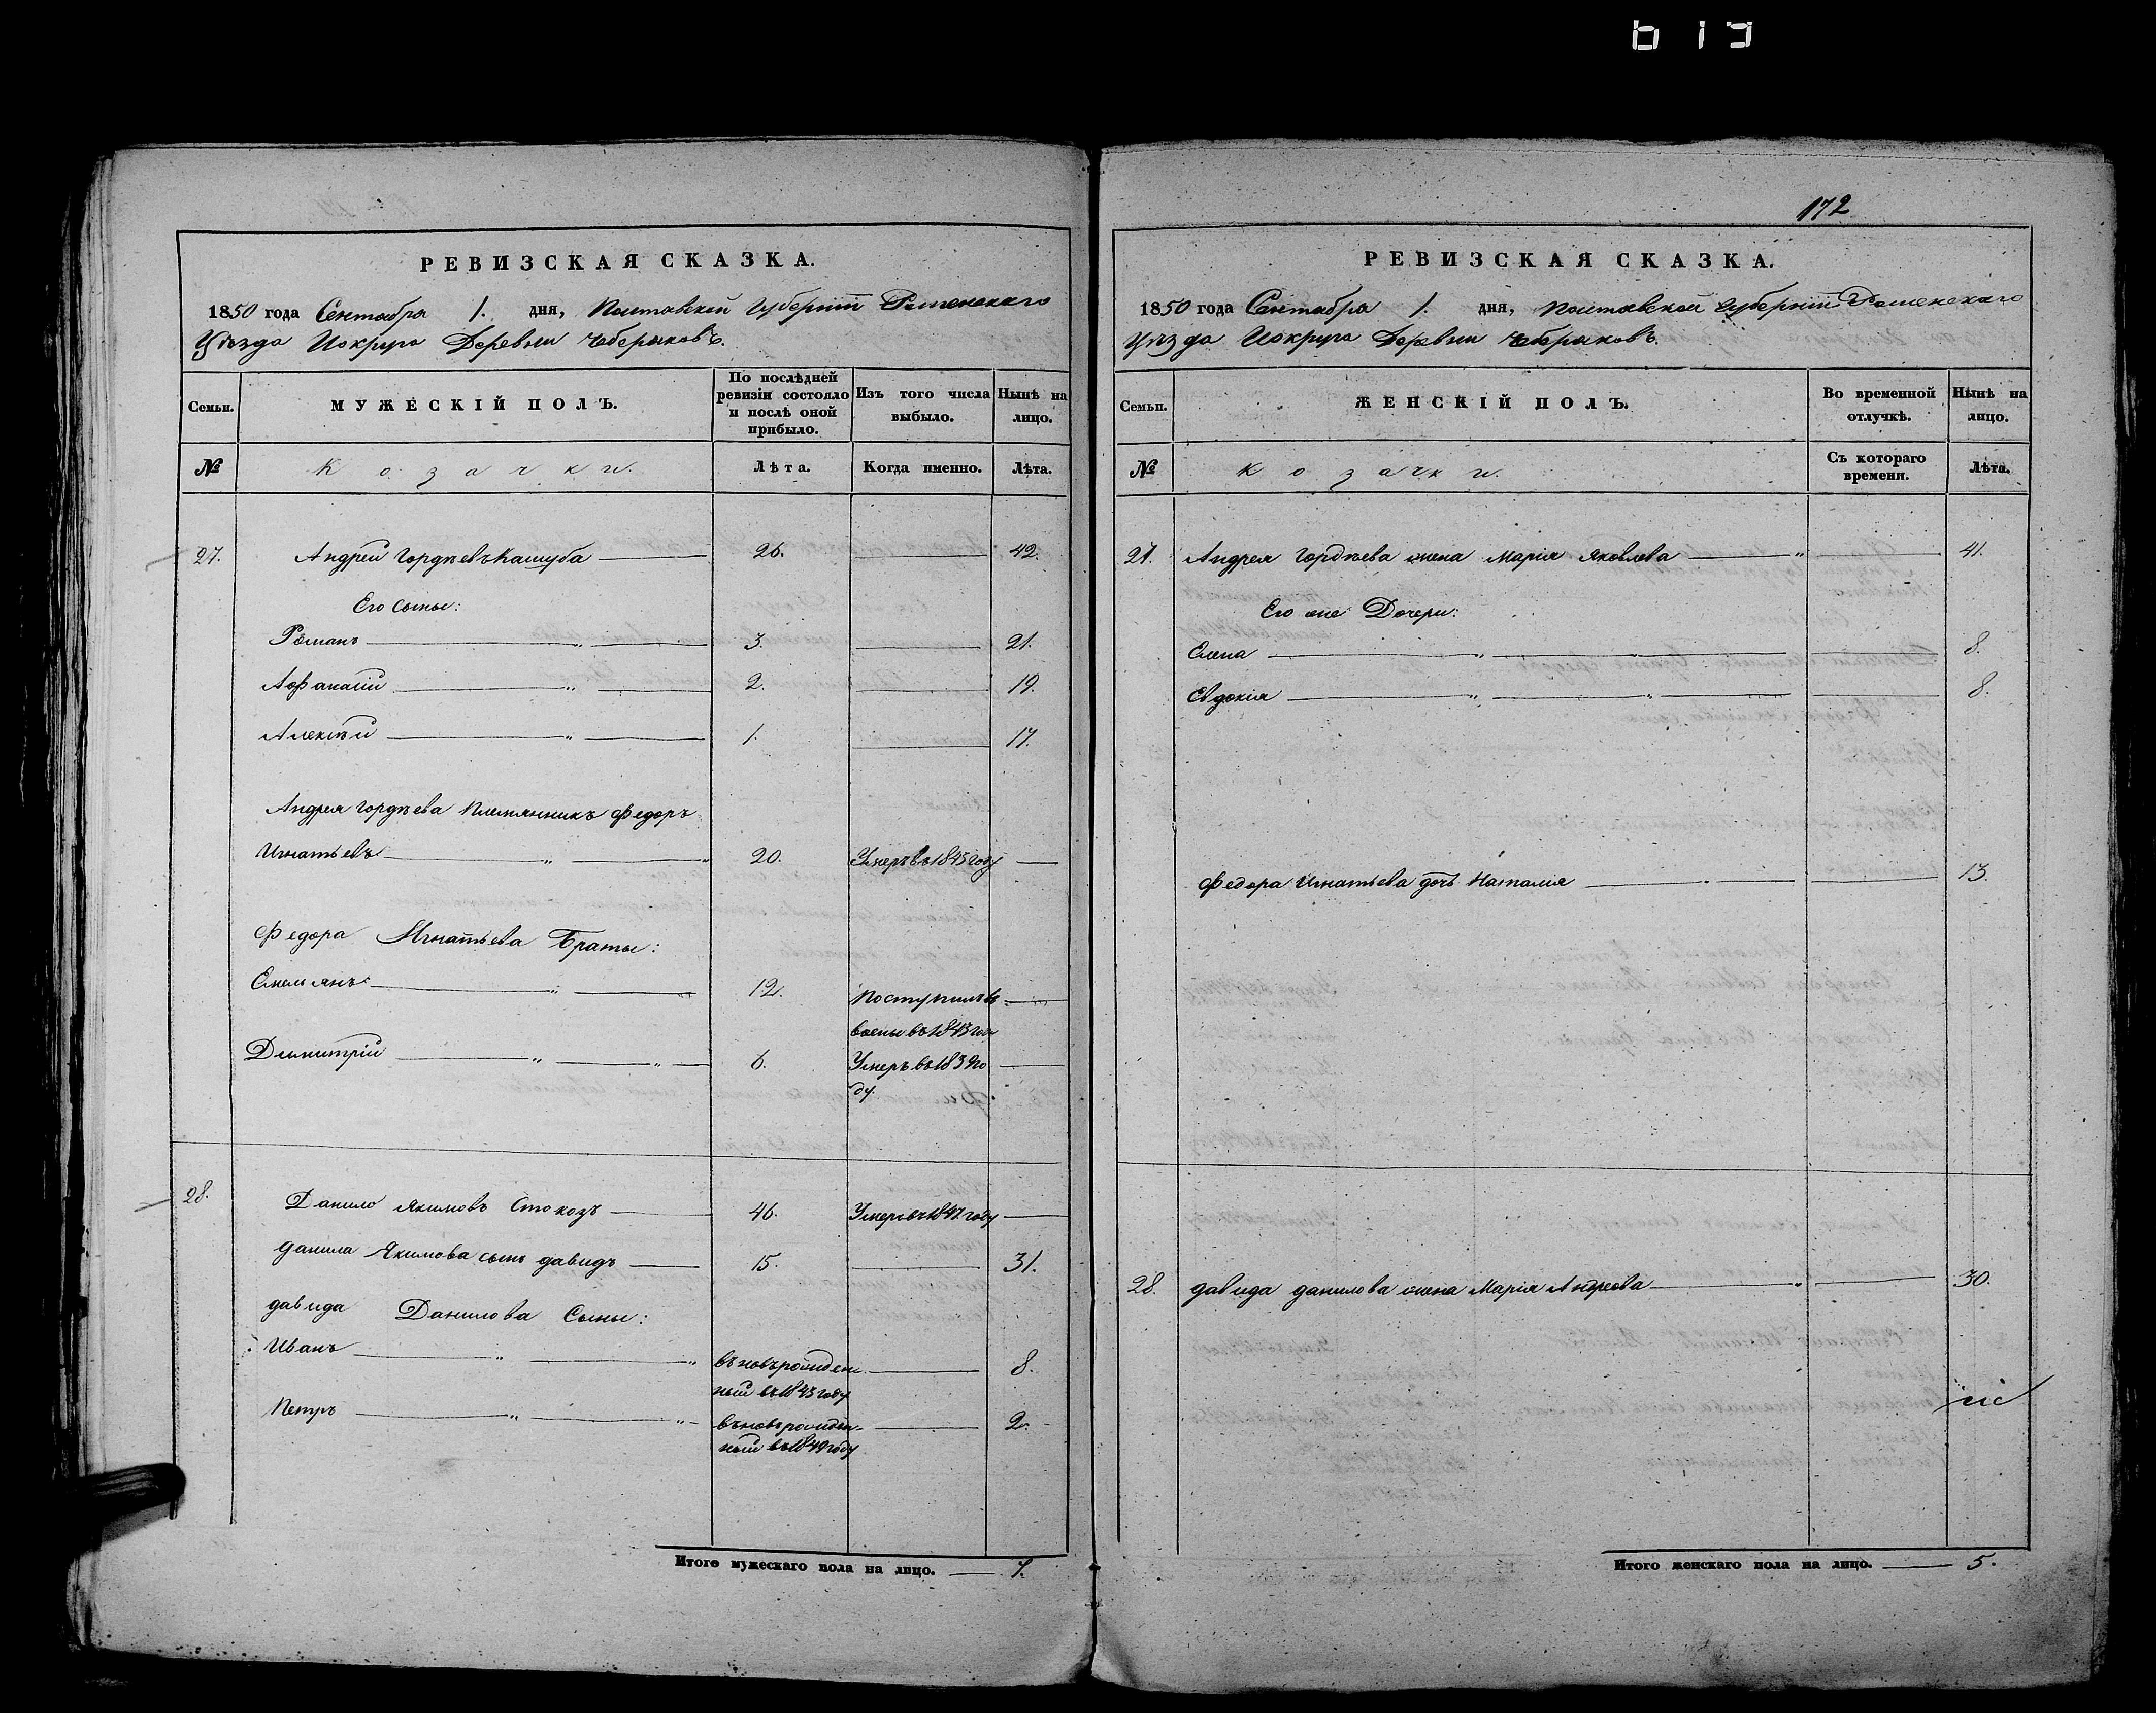 172
РЕВИЗСКАЯ СКАЗКА.
1850 года Сентября 1. дня, Полтавской Губерніи Роменскаго
Уѣзда И округа Деревни Чеберяковъ.
Семьи.
МУЖЕСКІЙ ПОЛЪ.
По послѣдней ревизіи состояло и послѣ оной прибыло.
Изъ того числа выбыло.
Нынѣ на лицо.
№
Козачки.
Лѣта.
Когда именно.
Лѣта.
27. Андрей Гордѣевъ Кашуба 26. 42.
Его Сыны:
Романъ " 3. 21.
Афанасій " 2. 19.
Алексѣй " 1. 17.
Андрея Гордѣева Племянникъ Федоръ
Игнатьевъ " " 20. Умеръ въ 1845 году
Федора Игнатьева Браты:
Емельянъ " " 12. Поступилъ въ
военъ въ 1843 году
Димитрій " " 6. Умеръ въ 1839 го
ду.
28. Данило Якимовъ Стокозъ 46. Умеръ въ 1847 году
Данила Якимова сынъ давидъ 15. 31.
давида Данилова Сыны:
Иванъ " " въновърожден 8.
ный въ 1843 году
Петръ " " въновърожден- 2.
ный въ 1849 году
Итого мужескаго пола на лицо. 7.
РЕВИЗСКАЯ СКАЗКА.
1850 года Сентября 1. дня, Полтавской Губерніи Роменскаго
Уѣзда И округа Деревни Чеберяковъ.
Семьи.
ЖЕНСКІЙ ПОЛЪ.
Во временной отлучкѣ.
Нынѣ на лицо.
№
Козачки.
Съ котораго времени.
Лѣта.
27. Андрея Гордѣева жена Марія Яковлева " 41.
Его же Дочери:
Елена " " 8.
Евдокія " " 8.
Федора Игнатьева дочь Наталія " 13.
28. давида данилова жена Марія Андреева " 30.
Итого женскаго пола на лицо. 5.